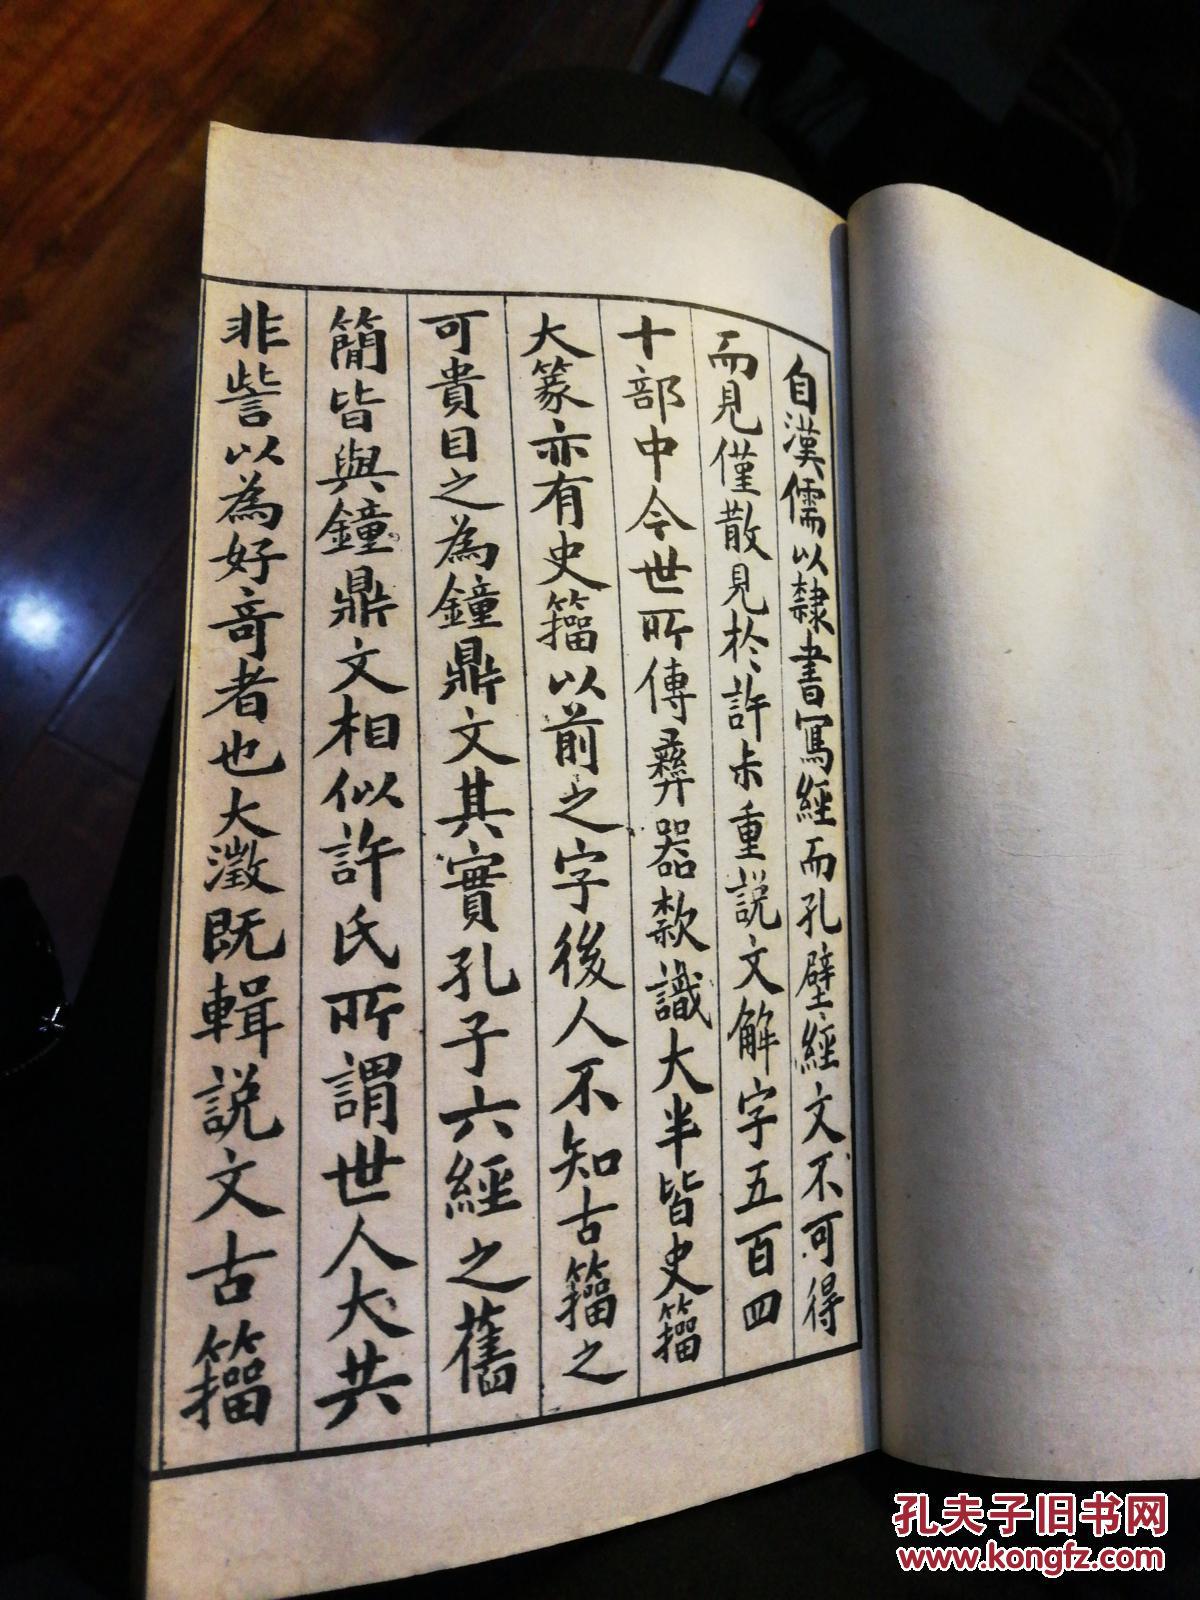 自漢儒以隸書寫經而孔壁經文不可得
而見僅散見於許尗重説文解字五百四
十部中今世所傳彝器款識大半皆史籀
大篆亦有史籀以前之字後人不知古籀之
可貴目之為鐘鼎文其實孔子六經之舊
簡皆與鐘鼎文相似許氏所謂世人大共
非訾以為好奇者也大澂既輯説文古籀
孔夫子旧书网
www.kongfz.com